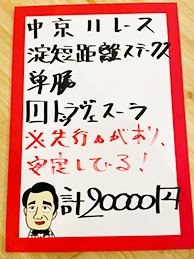 中京11レース
淀短距離ステークス
単勝
①トシヴェスーラ
※先行力があり、
安定している！
計20000円